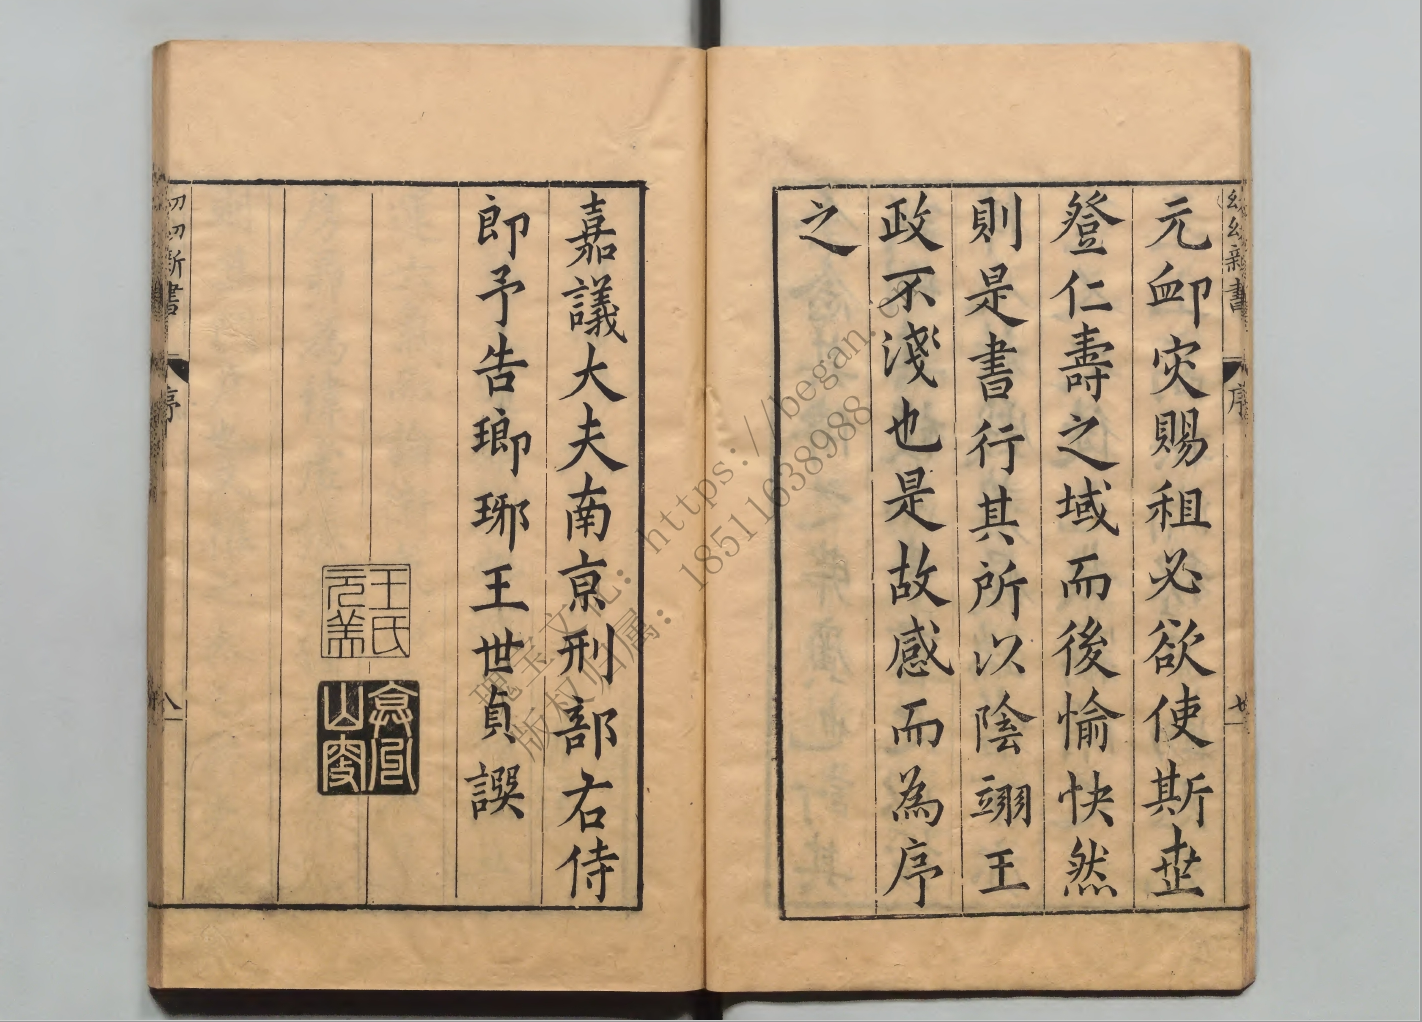 幼幼新書
序
元卹灾赐租必欲使斯世
登仁壽之域而後愉快然
則是書行其所以陰翊王
政不淺也是故感而為序
之
嘉議大夫南京刑部右侍
郎予告瑯琊王世貞譔
王氏
元美
幼幼新書
序
八
瑰宝文化：https://began.c
版权归属：18511638988